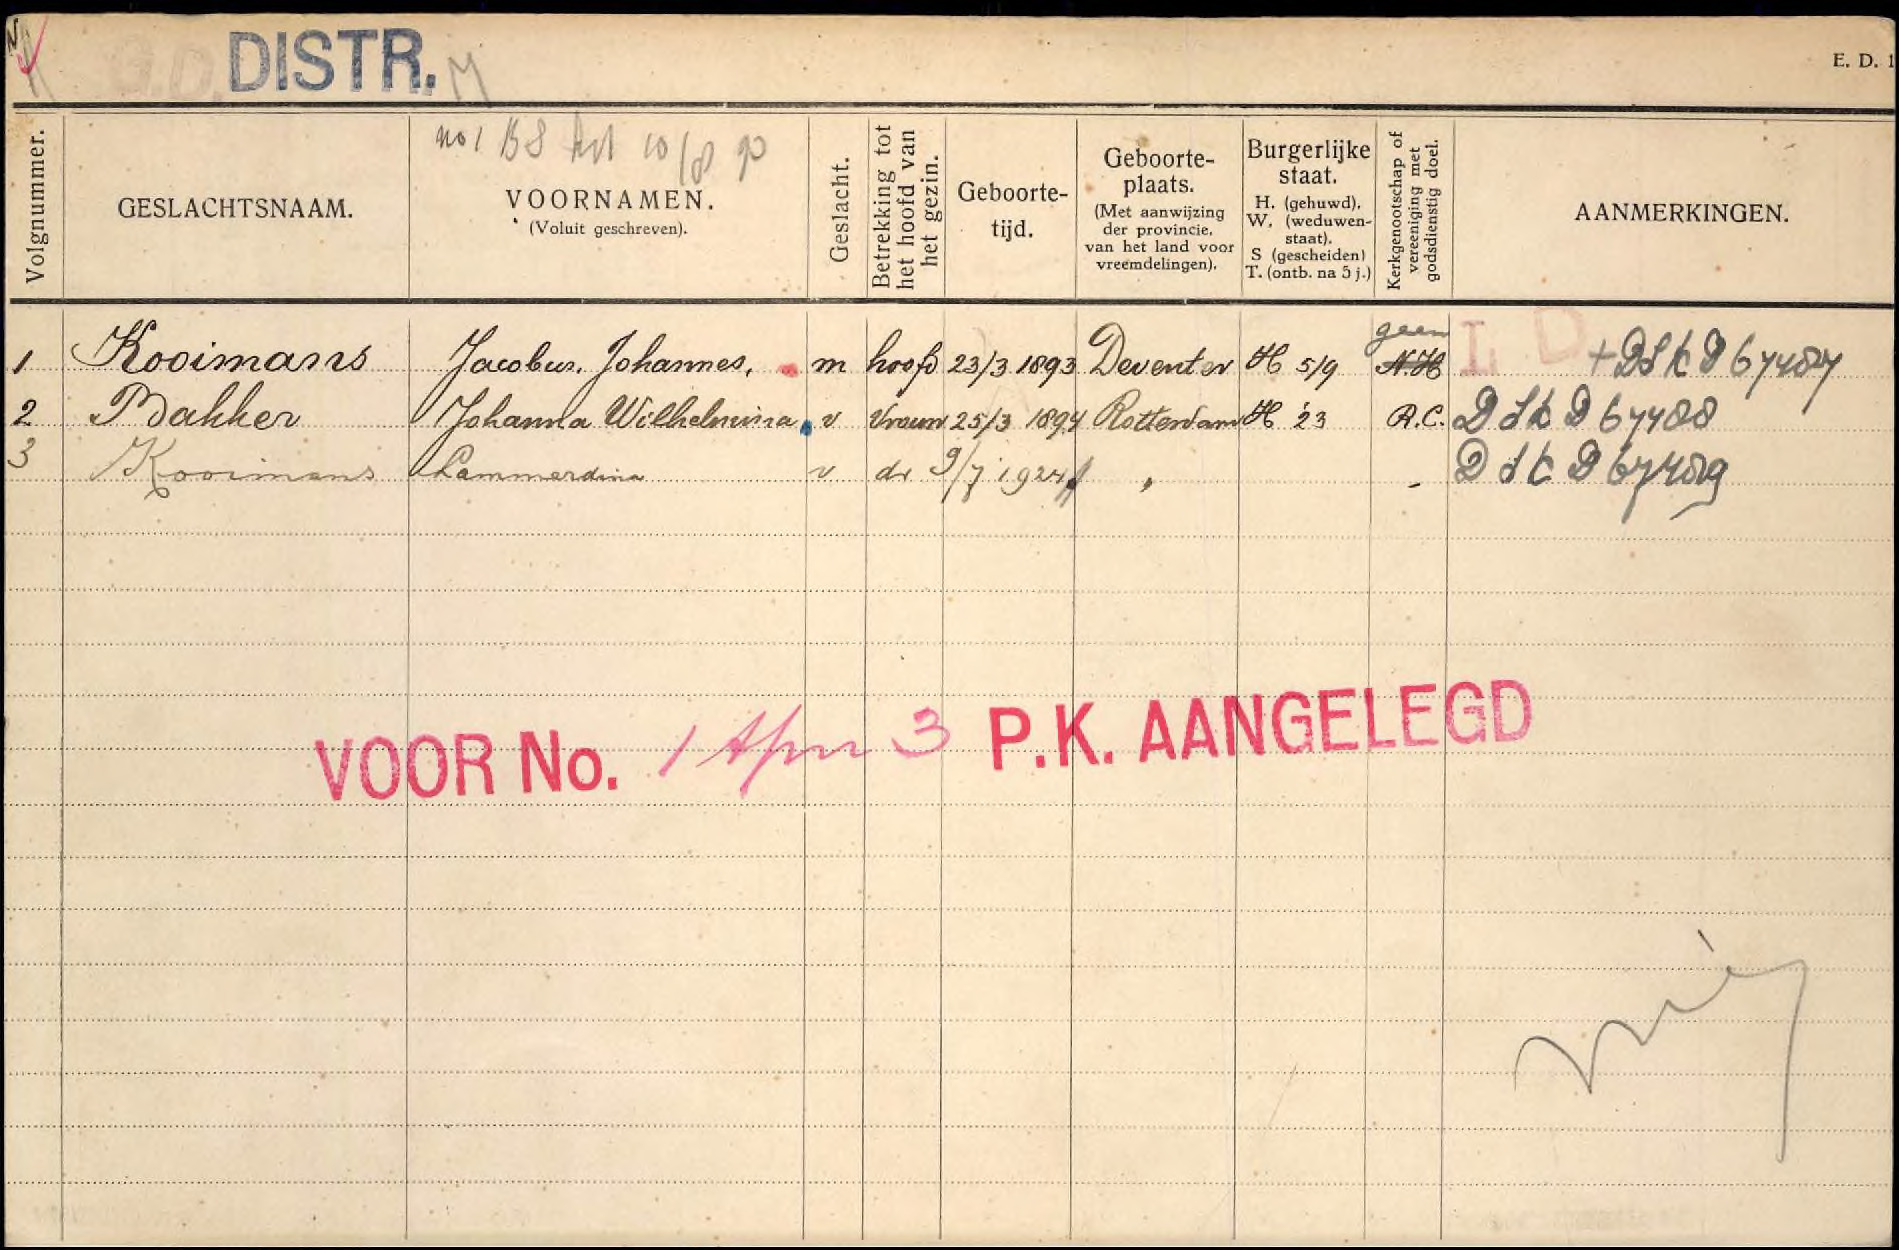 G.D. DISTR. M
E. D. 1
no 1 BS
Volgnummer.
GESLACHTSNAAM.
VOORNAMEN.
(Voluit geschreven).
Geslacht.
Betrekking tot
het hoofd van
het gezin.
Geboorte-
tijd.
Geboorte-
plaats.
(Met aanwijzing
der provincie,
van het land voor
vreemdelingen).
Burgerlijke
staat.
H. (gehuwd),
W. (weduwen-
staat),
S (gescheiden)
T. (ontb. na 5 j.)
Kerkgenootschap of
vereeniging met
godsdienstig doel.
AANMERKINGEN.
geen
1 Kooimans Jacobus, Johannes, m hoofd 23/3 1893 Deventer H 5/9 N.H. I. D + D 67487
2 Bakker Johanna Wilhelmina v vrouw 25/3 1894 Rotterdam H '23 R.C. D 67488
3 Kooimans Lammerdina v dr 9/7 1924 " - D 67489
VOOR No. 1 t/m 3 P.K. AANGELEGD